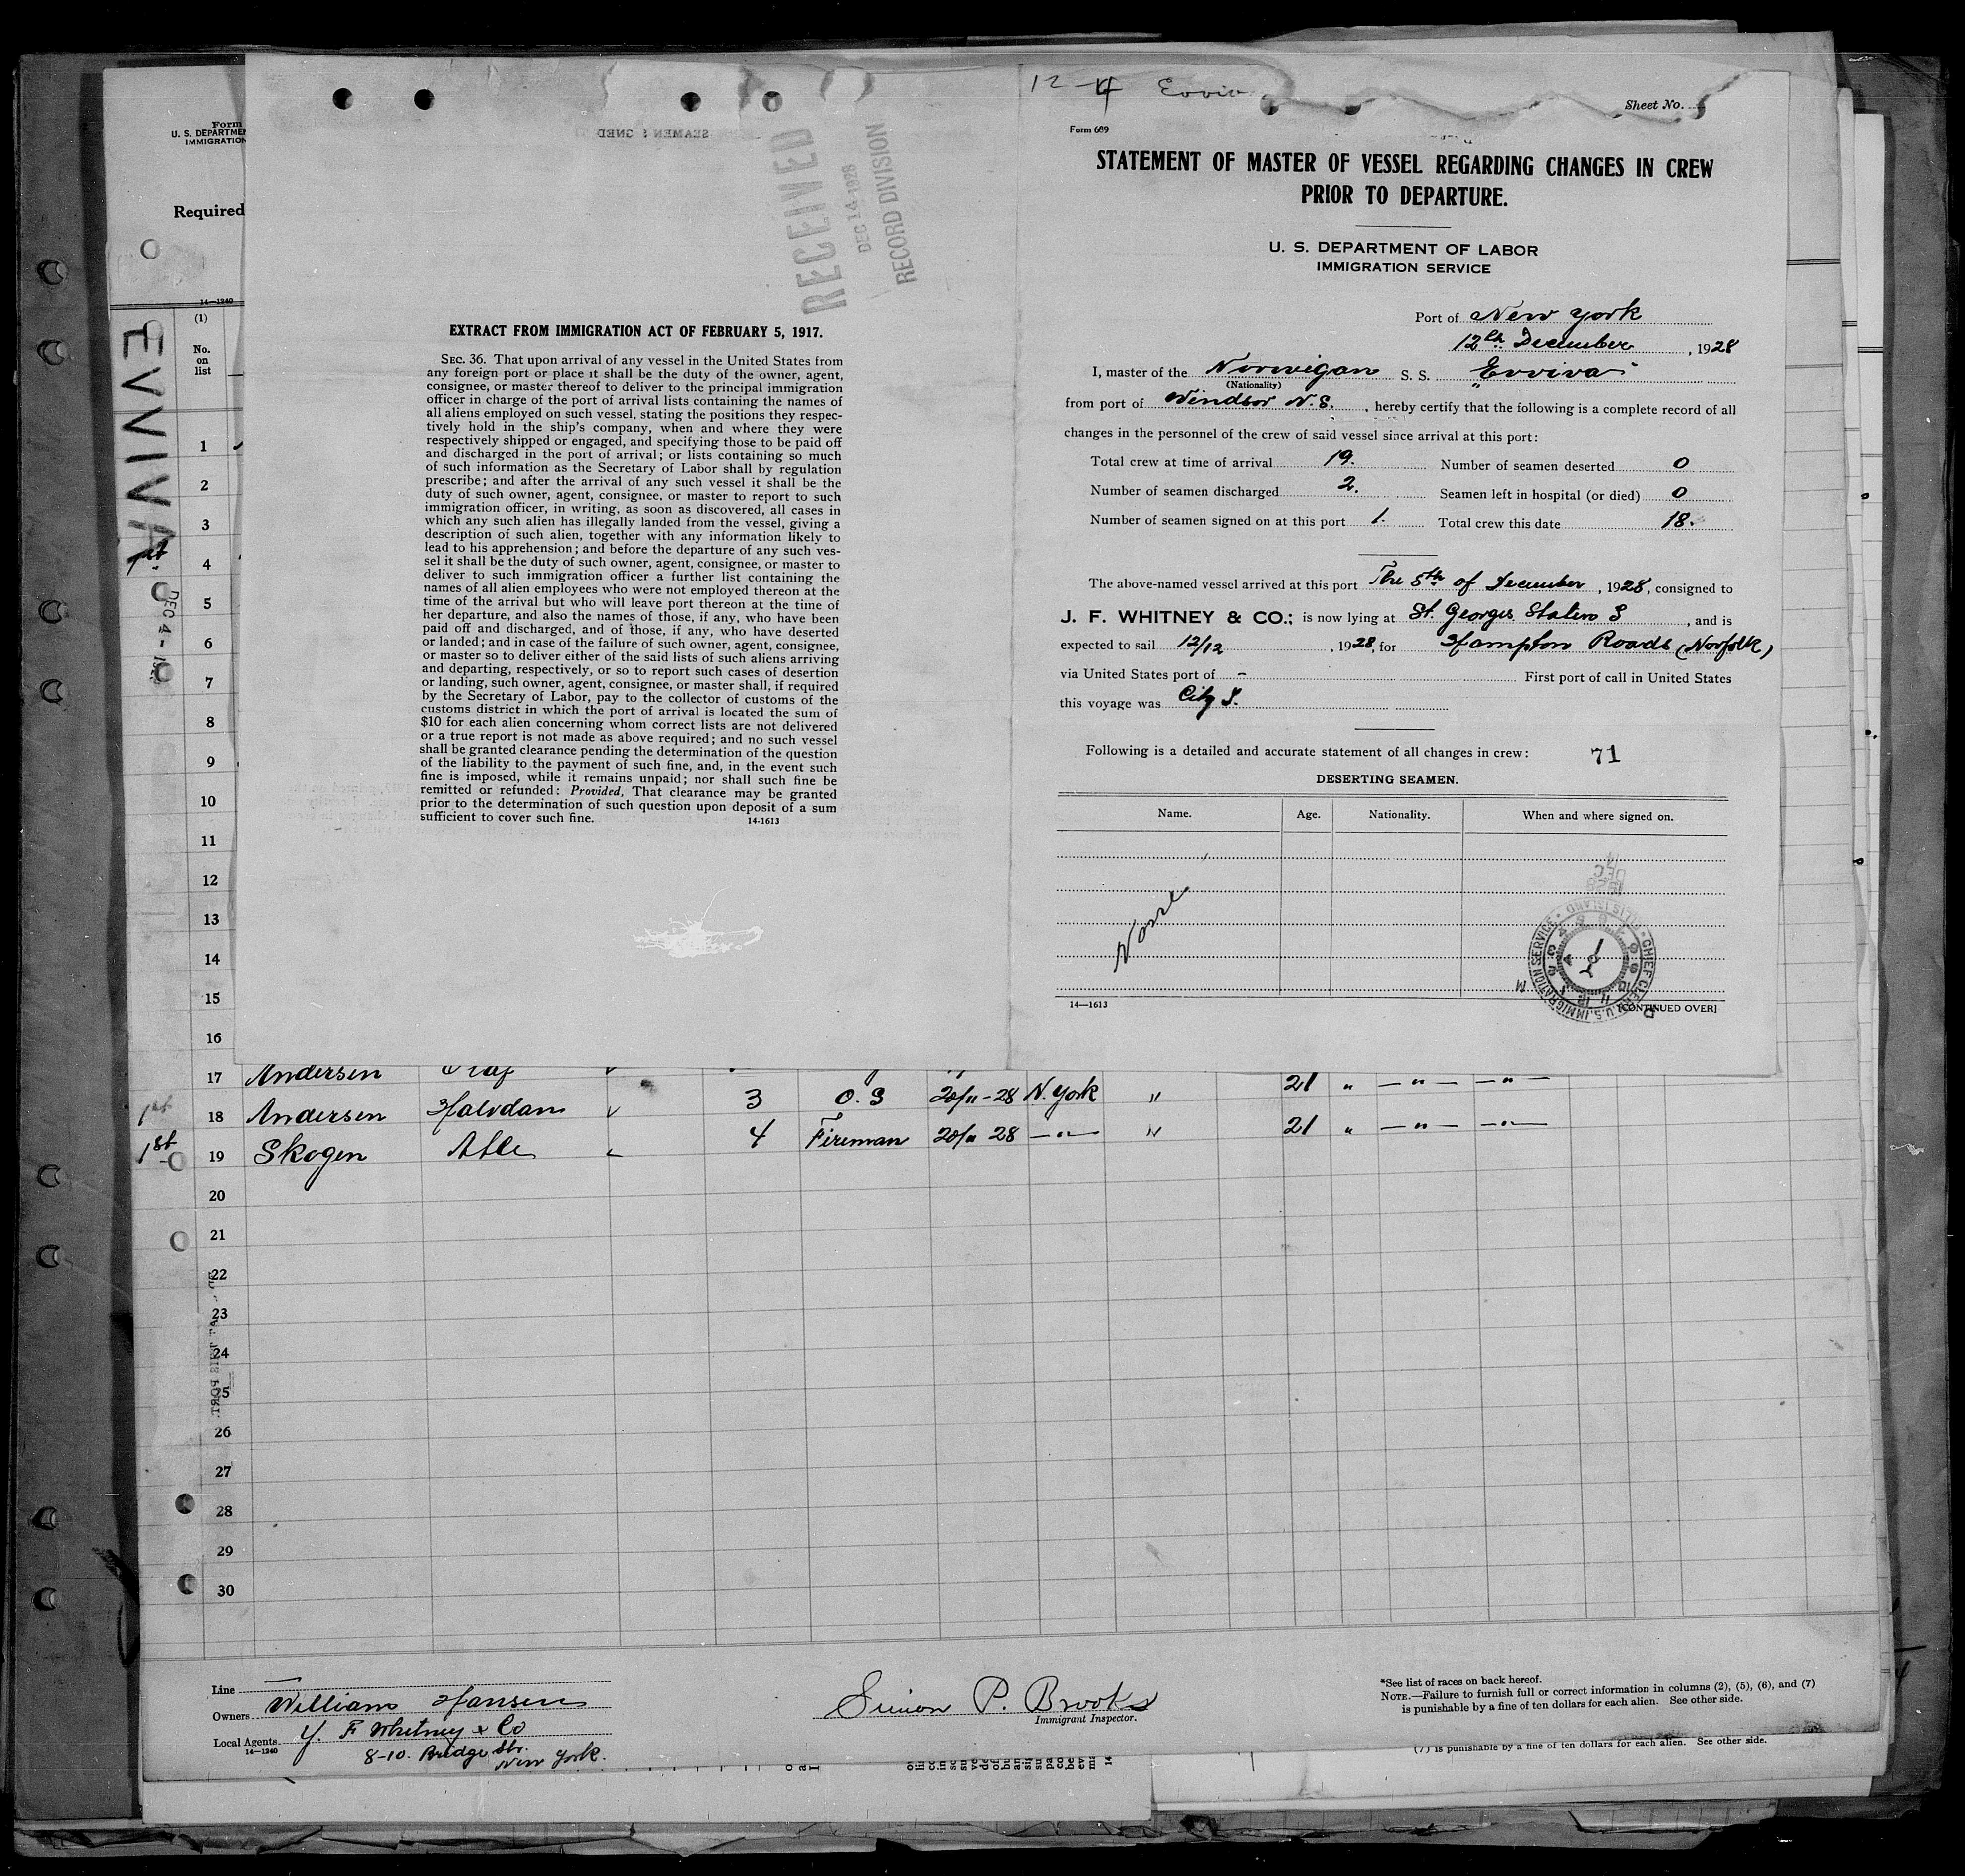 12-4 Evviv
Sheet No.
Form 689
STATEMENT OF MASTER OF VESSEL REGARDING CHANGES IN CREW
PRIOR TO DEPARTURE.
U. S. DEPARTMENT OF LABOR
IMMIGRATION SERVICE
Port of New York
12th December, 1928
I, master of the Norwigan S. S. "Evviva"
(Nationality)
from port of Windsor N.S., hereby certify that the following is a complete record of all
changes in the personnel of the crew of said vessel since arrival at this port:
Total crew at time of arrival 19. Number of seamen deserted 0
Number of seamen discharged 2. Seamen left in hospital (or died) 0
Number of seamen signed on at this port 1. Total crew this date 18.
The above-named vessel arrived at this port The 5th of December, 1928, consigned to
J. F. WHITNEY & CO.; is now lying at St. Georges Staten I, and is
expected to sail 12/12, 1928, for Hampton Roads (Norfolk)
via United States port of - First port of call in United States
this voyage was City I.
Following is a detailed and accurate statement of all changes in crew: 71
DESERTING SEAMEN.
Name. Age. Nationality. When and where signed on.
None
14—1613
[CONTINUED OVER]
U.S. IMMIGRATION SERVICE
ELLIS ISLAND
CHIEF CLERK
DEC
1928
SEAMEN
RECEIVED
DEC 14 1928
RECORD DIVISION
EXTRACT FROM IMMIGRATION ACT OF FEBRUARY 5, 1917.
SEC. 36. That upon arrival of any vessel in the United States from
any foreign port or place it shall be the duty of the owner, agent,
consignee, or master thereof to deliver to the principal immigration
officer in charge of the port of arrival lists containing the names of
all aliens employed on such vessel, stating the positions they respec-
tively hold in the ship's company, when and where they were
respectively shipped or engaged, and specifying those to be paid off
and discharged in the port of arrival; or lists containing so much
of such information as the Secretary of Labor shall by regulation
prescribe; and after the arrival of any such vessel it shall be the
duty of such owner, agent, consignee, or master to report to such
immigration officer, in writing, as soon as discovered, all cases in
which any such alien has illegally landed from the vessel, giving a
description of such alien, together with any information likely to
lead to his apprehension; and before the departure of any such ves-
sel it shall be the duty of such owner, agent, consignee, or master to
deliver to such immigration officer a further list containing the
names of all alien employees who were not employed thereon at the
time of the arrival but who will leave port thereon at the time of
her departure, and also the names of those, if any, who have been
paid off and discharged, and of those, if any, who have deserted
or landed; and in case of the failure of such owner, agent, consignee,
or master so to deliver either of the said lists of such aliens arriving
and departing, respectively, or so to report such cases of desertion
or landing, such owner, agent, consignee, or master shall, if required
by the Secretary of Labor, pay to the collector of customs of the
customs district in which the port of arrival is located the sum of
$10 for each alien concerning whom correct lists are not delivered
or a true report is not made as above required; and no such vessel
shall be granted clearance pending the determination of the question
of the liability to the payment of such fine, and, in the event such
fine is imposed, while it remains unpaid; nor shall such fine be
remitted or refunded: Provided, That clearance may be granted
prior to the determination of such question upon deposit of a sum
sufficient to cover such fine.
14-1613
Form
U. S. DEPARTMEN
IMMIGRATION
Required
14—1240
EVVIVA
DEC 4 -
(1)
No.
on
list
1
2
3
1st 4
5
6
7
8
9
10
11
12
13
14
15
16
17 Andersen Olaf 21 " —"— —"—
1st 18 Andersen Halvdan v 3 O.S 20/11-28 N.York " 21 " —"— —"—
1st 19 Skogen Atle 4 Fireman 20/11 28 —"— " 21 " —"— —"—
20
21
22
23
24
25
26
27
28
29
30
Line —
Owners William Hansen
Local Agents Y. F Whitney & Co
14—1240
8-10. Bridge Str.
New York.
Simon P. Brooks
Immigrant Inspector.
*See list of races on back hereof.
NOTE.—Failure to furnish full or correct information in columns (2), (5), (6), and (7)
is punishable by a fine of ten dollars for each alien. See other side.
(7) is punishable by a fine of ten dollars for each alien. See other side.